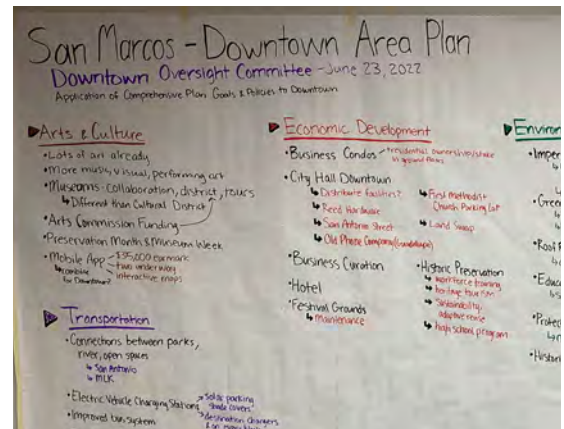 San Marcos - Downtown Area Plan
Downtown Oversight Committee - June 23, 2022
Application of Comprehensive Plan Goals & Policies to Downtown
Arts & Culture
• Lots of art already
• More music, visual, performing art
• Museums - collaboration, district, tours
↳ Different than Cultural District
• Arts Commission Funding
• Preservation Month & Museum Week
• Mobile App
↳ combine for Downtown?
$35,000 earmark
two underway
interactive maps
Transportation
• Connections between parks,
river, open spaces
↳ San Antonio
↳ MLK
• Electric Vehicle Charging Stations
solar parking
shade covers
destination chargers
• Improved bus system
Economic Development
• Business Condos
residential ownership/stake
in ground floors
• City Hall Downtown
↳ Distribute facilities?
↳ Reed Hardware
↳ San Antonio Street
↳ Old Phone Company (Guadalupe)
↳ First Methodist
Church Parking Lot
↳ Land Swap
• Business Curation
• Hotel
• Festival Grounds
↳ maintenance
• Historic Preservation
↳ workforce training
↳ heritage tourism
↳ sustainability,
adaptive reuse
↳ high school program